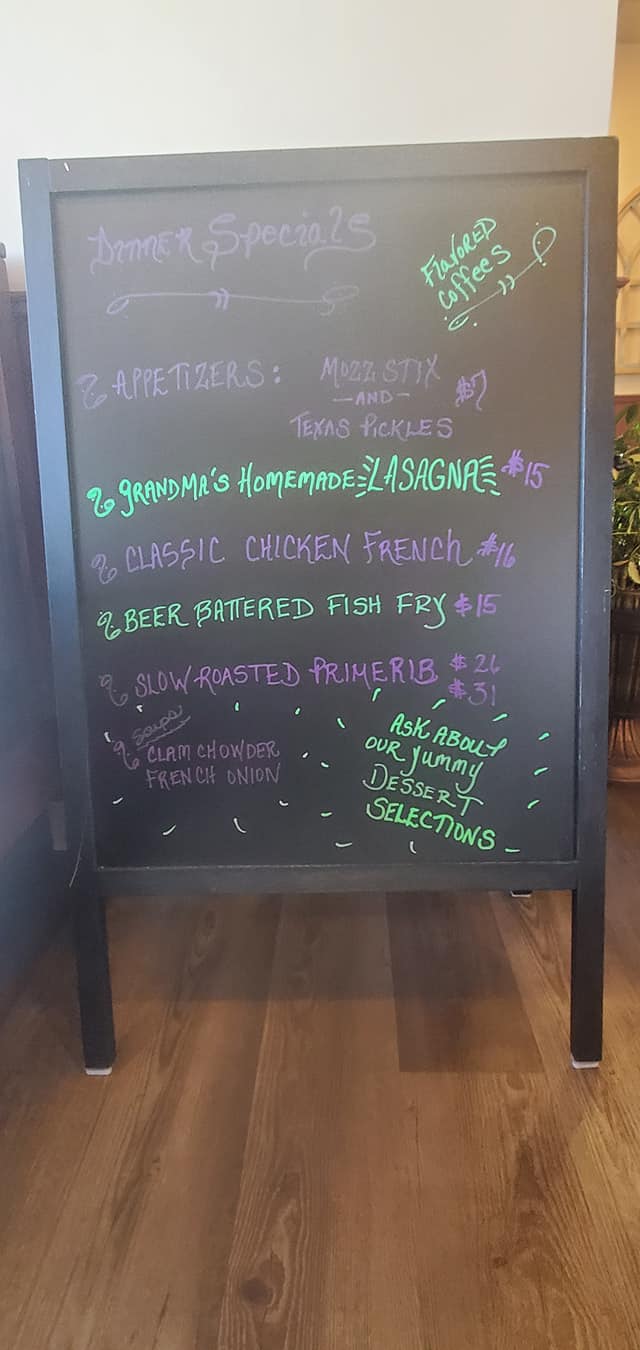 Dinner Specials
Flavored
Coffees
APPETIZERS: MOZZ STIX
-AND- $7
TEXAS PICKLES
GRANDMA'S HOMEMADE LASAGNA $15
CLASSIC CHICKEN FRENCH $16
BEER BATTERED FISH FRY $15
SLOW ROASTED PRIMERIB $26
$31
Soups
CLAM CHOWDER
FRENCH ONION
ASK ABOUT
OUR yummy
DESSERT
SELECTIONS